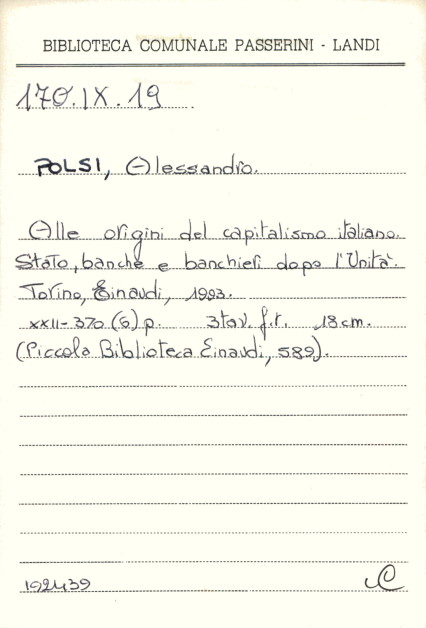 BIBLIOTECA COMUNALE PASSERINI - LANDI
170.IX.19
POLSI, Alessandro.
Alle origini del capitalismo italiano.
Stato, banche e banchieri dopo l'Unità.
Torino, Einaudi, 1993.
XXII-370 (6) p. 3 tav. f.t. 18 cm.
(Piccola Biblioteca Einaudi, 589).
192439